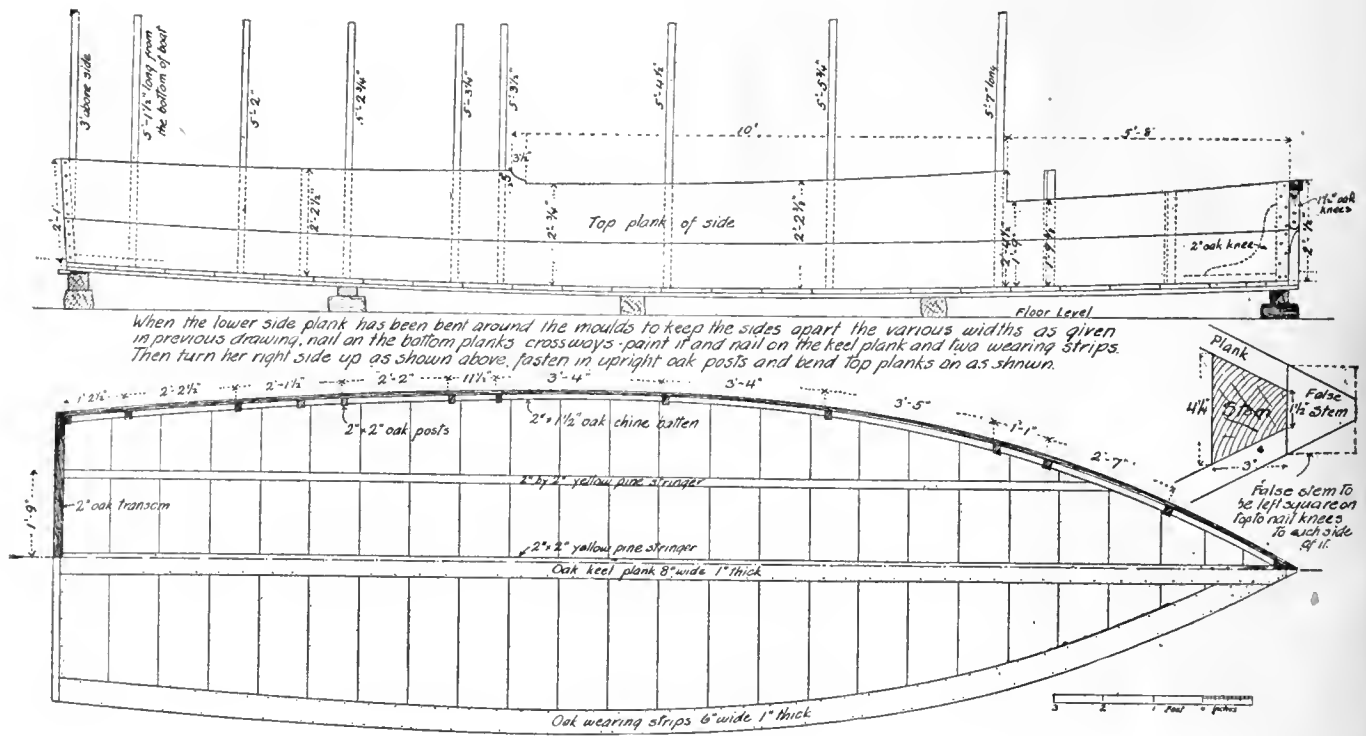 3' above side
5'-1½" long from
the bottom of boat
5'-2"
5'-2¾"
5'-3¼"
5'-3½"
5'-4½"
5'-5¾"
5'-7" long
10'
5'-8"
3½"
5"
2'-1"
2'-2½"
2'-¾"
Top plank of side
2'-2½"
2'-4½"
1'-9"
2" oak knee
1½" oak
knees
2'-½"
Floor Level
When the lower side plank has been bent around the moulds to keep the sides apart the various widths as given
in previous drawing, nail on the bottom planks crossways - paint it and nail on the keel plank and two wearing strips.
Then turn her right side up as shown above, fasten in upright oak posts and bend top planks on as shown.
1'-2½"
2'-2½"
2'-1½"
2'-2"
11½"
3'-4"
3'-4"
3'-5"
1'-1"
2'-7"
2" × 2" oak posts
2" × 1½" oak chine batten
2" by 2" yellow pine stringer
1'-9"
2" oak transom
2" × 2" yellow pine stringer
Oak keel plank 8" wide 1" thick
Oak wearing strips 6" wide 1" thick
Plank
4¼"
Stem
1½"
False
Stem
3"
False stem to
be left square on
top to nail knees
to each side
of it.
3 2 1 Feet 0 Inches